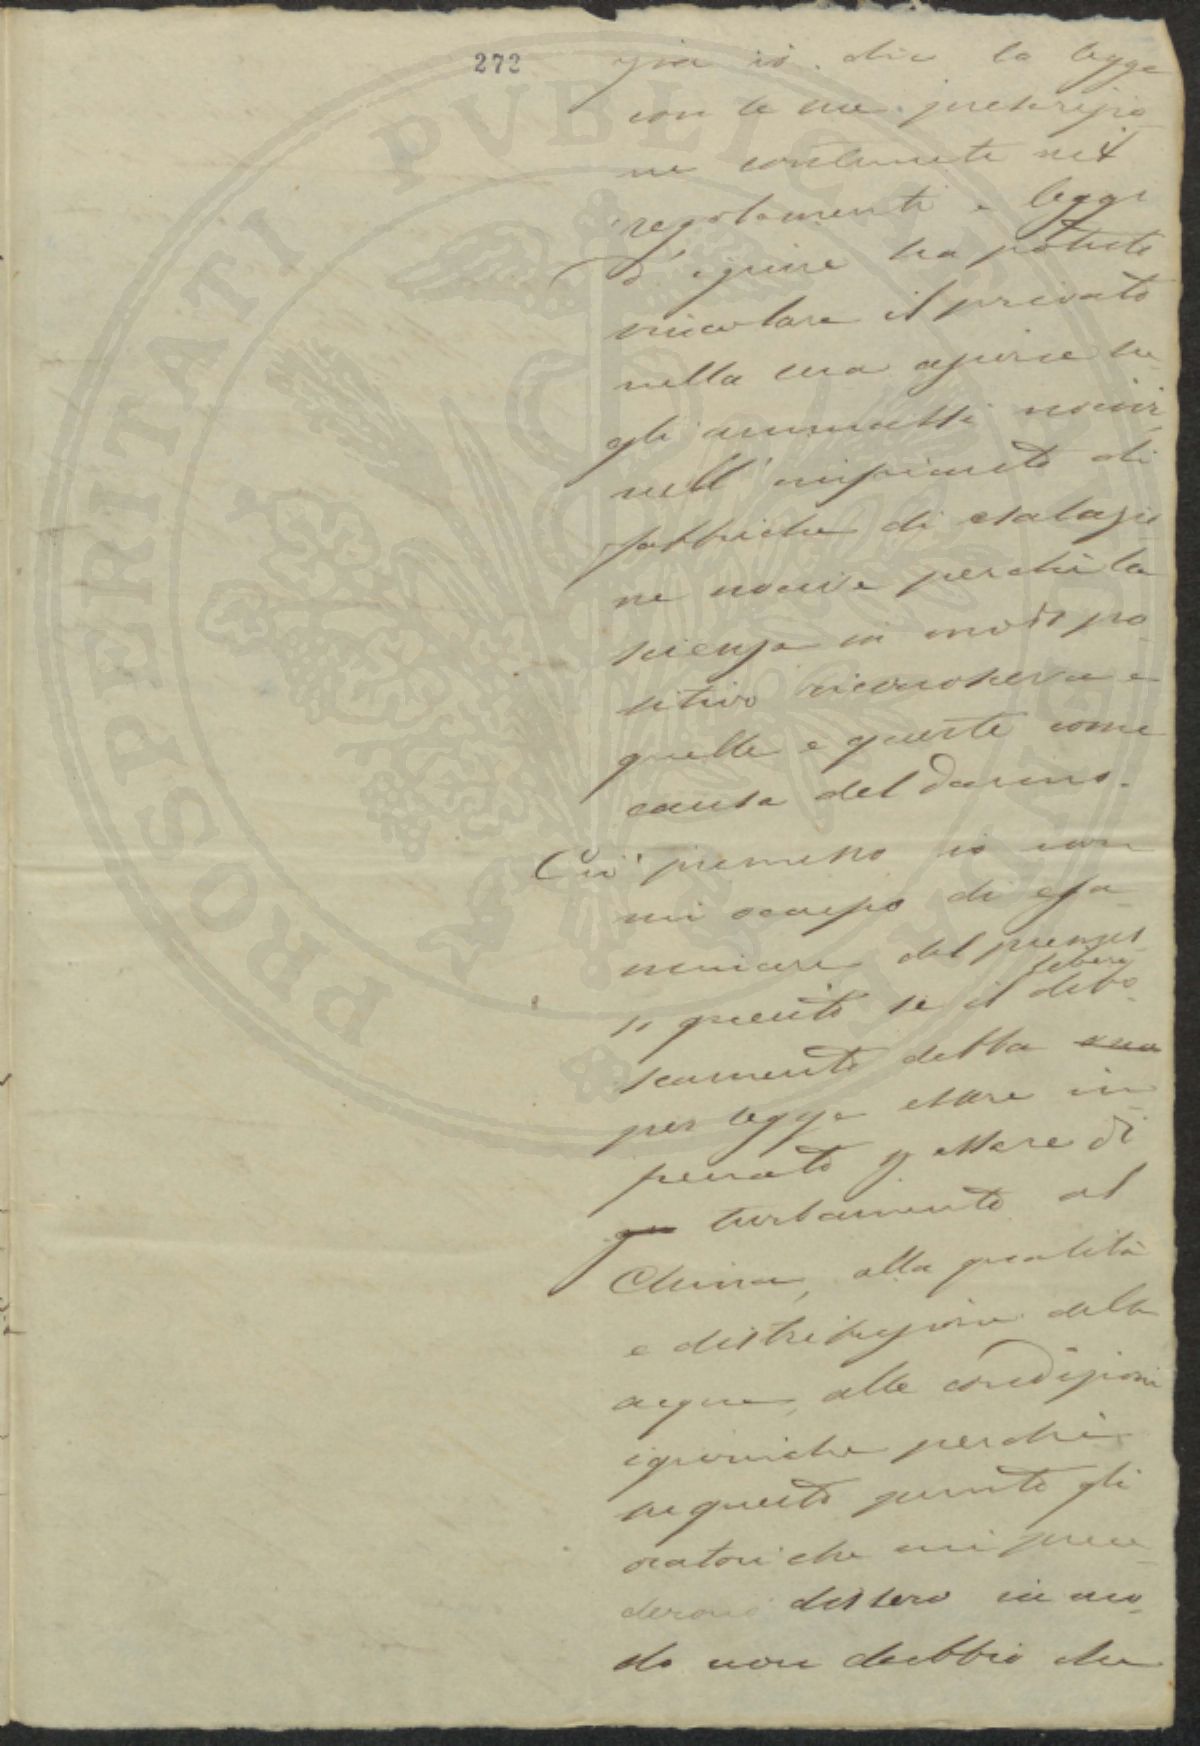 272
già io dire la legge
con le sue prescrizio
ni contenute nei
regolamenti e leggi
d'igiene ha potuto
vincolare il privato
nella sua azione su
gli ammassi nocivi
nell'impianto di
fabbriche di esalazio
ne nocive perchè la
scienza in modo po
sitivo riconosceva e
quelle e queste come
causa del danno.
Ciò premesso io non
mi occupo di esa
minare del premes
so quesito se il libero disbo
scamento debba sua
per legge essere im
perato essere di
qu turbamento al
Clima, alla qualità
e distribuzione delle
acque, alle condizioni
igieniche perchè
a questo punto gli
oratori che mi prece
derono dissero in mo
do non dubbio che
PROSPERITATI PVBLICAE